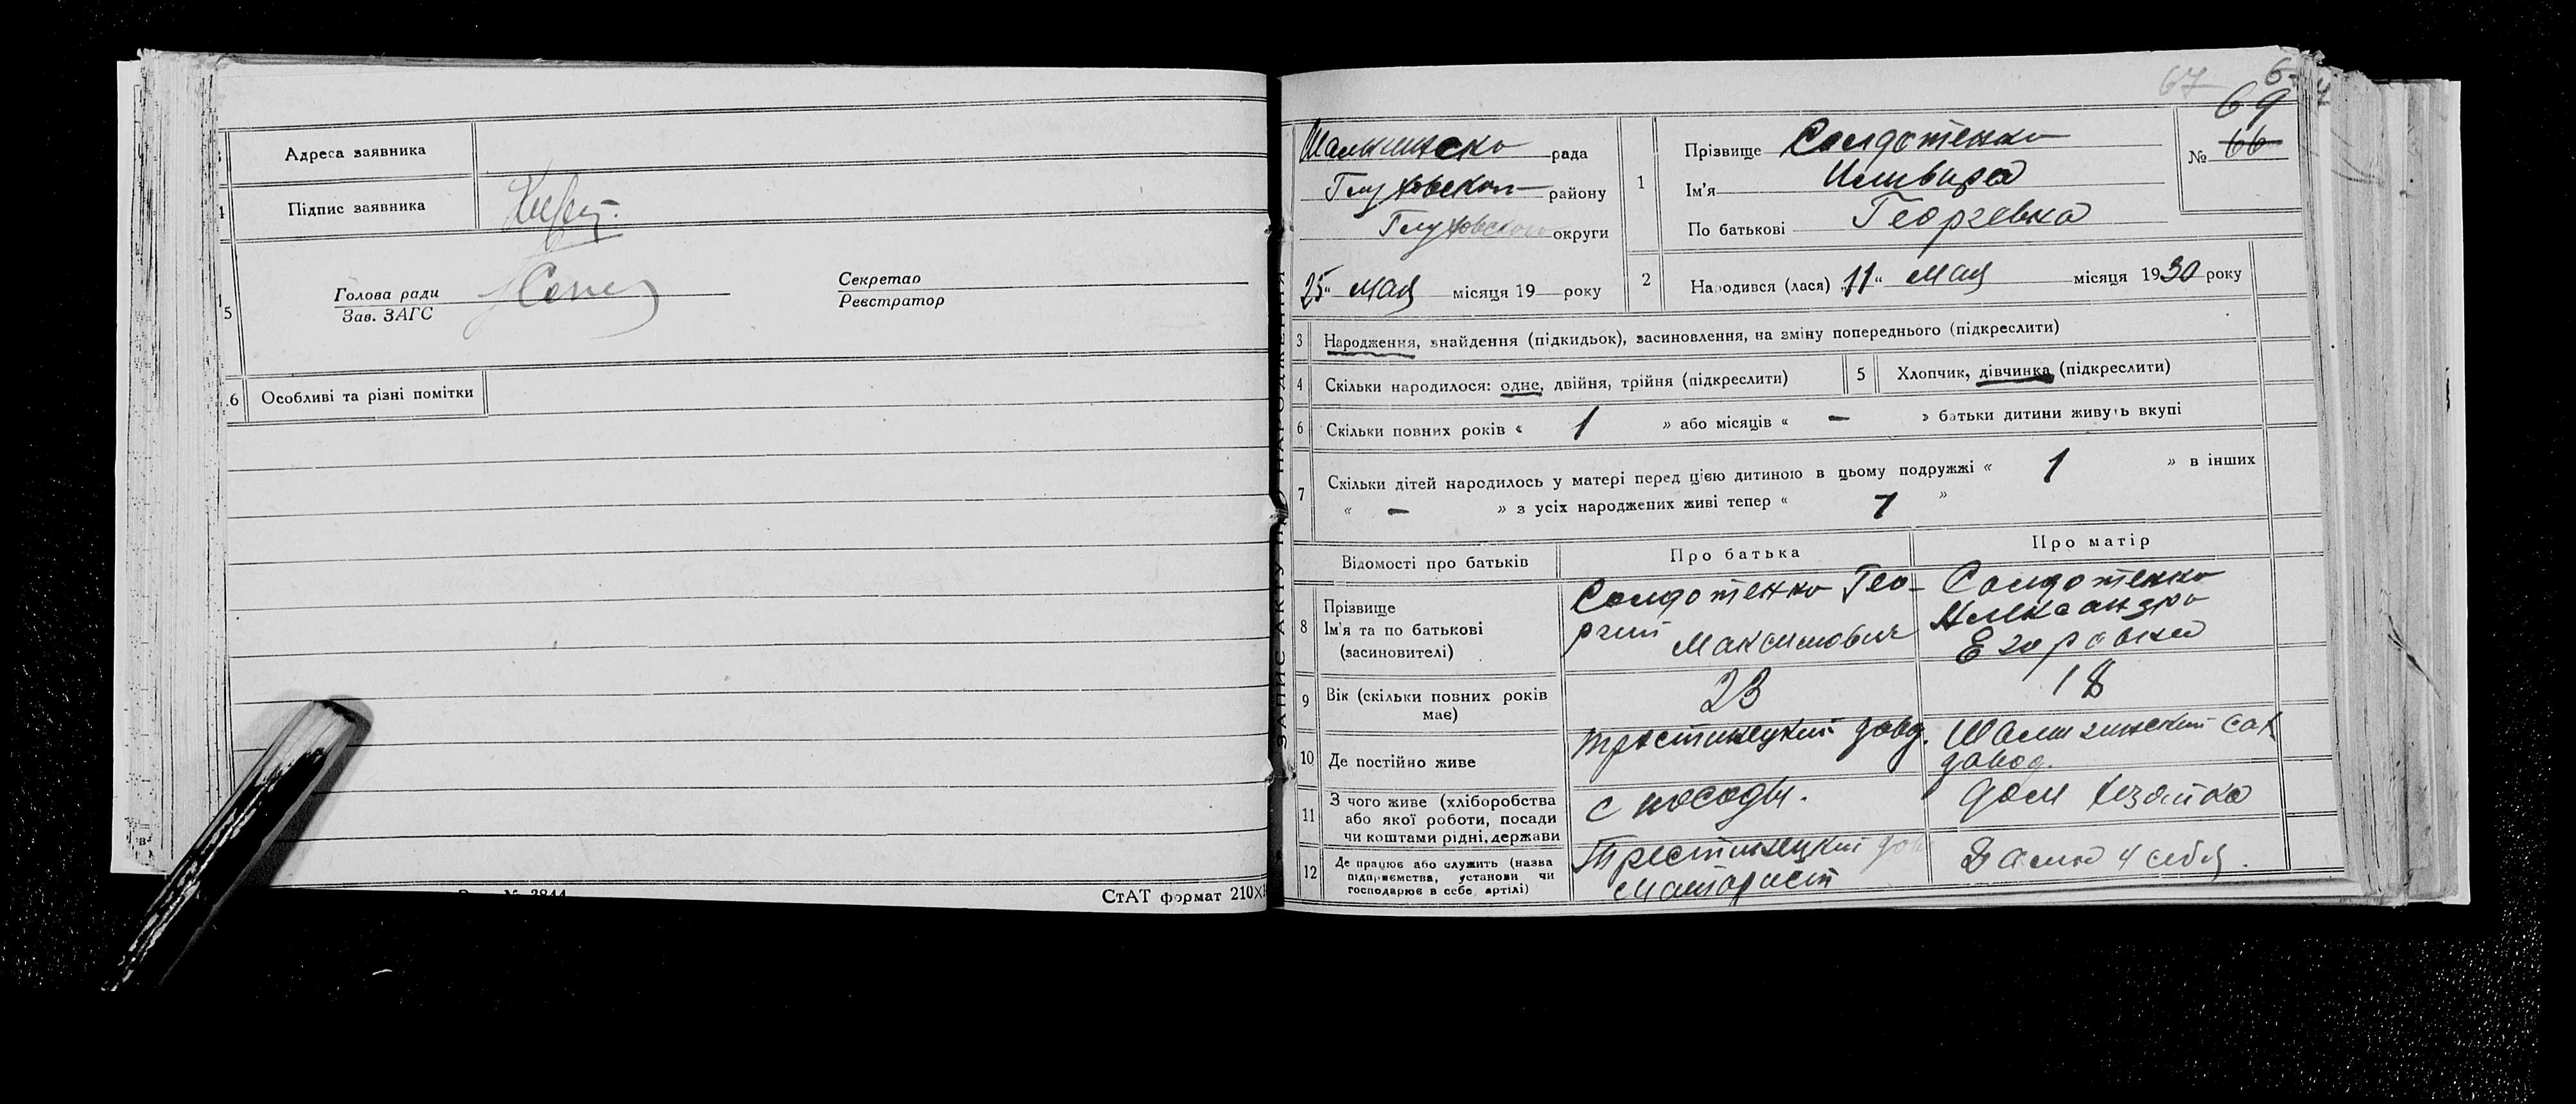 Адреса заявника
Підпис заявника
Голова ради
Зав. ЗАГС
Секретар
Реєстратор
5
6 Особливі та різні помітки
СтАТ формат 210Х
ЗАПИС АКТУ ПРО НАРОДЖЕННЯ
67
69
№ 66
рада
Глуховского району
Глуховского округи
25 " мая місяця 19 року
1
Прізвище Солдотенко
Ім'я
По батькові Георгевна
2 Народився (лася) „ 11 " мая місяця 1930 року
3 Народження, знайдення (підкидьок), засиновлення, на зміну попереднього (підкреслити)
4 Скільки народилося: одне, двійня, трійня (підкреслити) 5 Хлопчик, дівчинка (підкреслити)
6 Скільки повних років « 1 » або місяців « — » батьки дитини живуть вкупі
7 Скільки дітей народилось у матері перед цією дитиною в цьому подружжі « 1 » в інших
« — » з усіх народжених живі тепер « 1 »
Відомості про батьків Про батька Про матір
8 Прізвище
Ім'я та по батькові
(засиновителі)
Солдотенко Гео-
ргий
Максимович
Солдотенко
Александра
Егоровна
9 Вік (скільки повних років
має)
23
18
10 Де постійно живе
завод.
11 З чого живе (хліборобства
або якої роботи, посади
чи коштами рідні, держави
с посоды.
дом хозяйка
12 Де працює або служить (назва
підприємства, установи чи
господарює в себе, артілі)